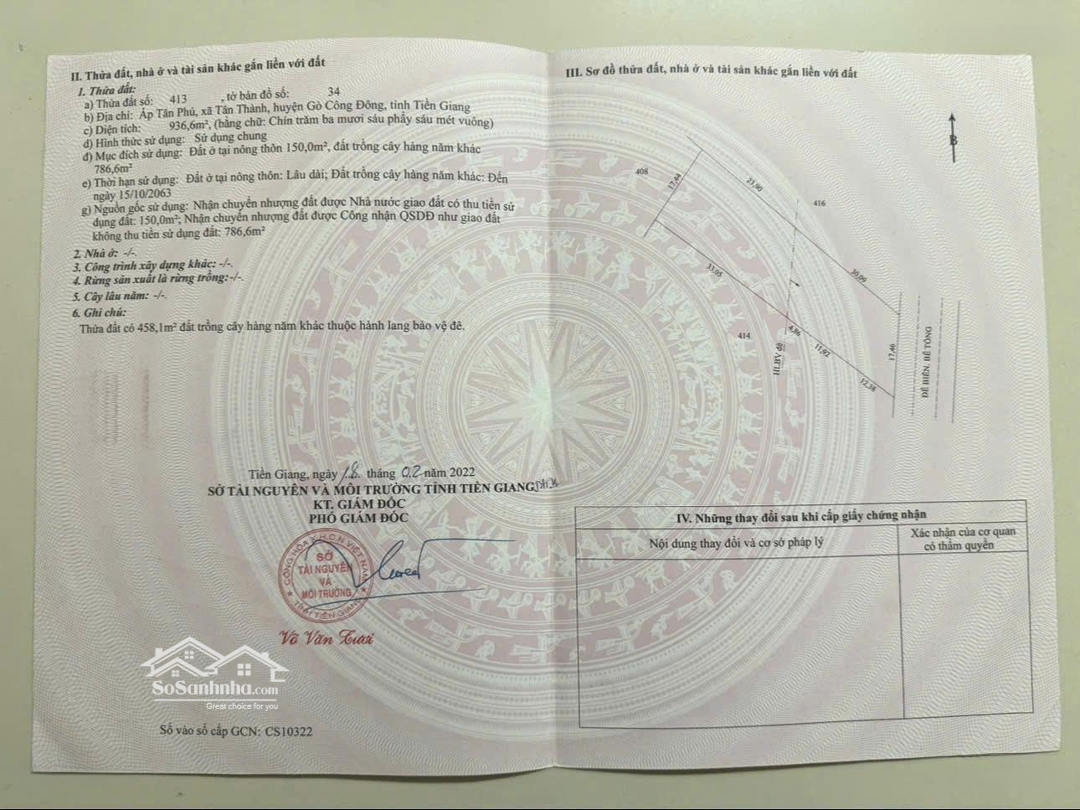 II. Thửa đất, nhà ở và tài sản khác gắn liền với đất
1. Thửa đất:
a) Thửa đất số: 413 , tờ bản đồ số: 34
b) Địa chỉ: Ấp Tân Phú, xã Tân Thành, huyện Gò Công Đông, tỉnh Tiền Giang
c) Diện tích: 936,6m², (bằng chữ: Chín trăm ba mươi sáu phẩy sáu mét vuông)
d) Hình thức sử dụng: Sử dụng chung
đ) Mục đích sử dụng: Đất ở tại nông thôn 150,0m², đất trồng cây hàng năm khác
786,6m²
e) Thời hạn sử dụng: Đất ở tại nông thôn: Lâu dài; Đất trồng cây hàng năm khác: Đến
ngày 15/10/2063
g) Nguồn gốc sử dụng: Nhận chuyển nhượng đất được Nhà nước giao đất có thu tiền sử
dụng đất: 150,0m²; Nhận chuyển nhượng đất được Công nhận QSDĐ như giao đất
không thu tiền sử dụng đất: 786,6m²
2. Nhà ở: -/-.
3. Công trình xây dựng khác: -/-.
4. Rừng sản xuất là rừng trồng:-/-.
5. Cây lâu năm: -/-.
6. Ghi chú:
Thửa đất có 458,1m² đất trồng cây hàng năm khác thuộc hành lang bảo vệ đê.
Tiền Giang, ngày 18 tháng 02 năm 2022
SỞ TÀI NGUYÊN VÀ MÔI TRƯỜNG TỈNH TIỀN GIANG
KT. GIÁM ĐỐC
PHÓ GIÁM ĐỐC
CỘNG HÒA X.H.C.N VIỆT NAM
SỞ
TÀI NGUYÊN
VÀ
MÔI TRƯỜNG
TỈNH TIỀN GIANG
Võ Văn Tươi
SoSanhnha.com
Great choice for you
Số vào sổ cấp GCN: CS10322
III. Sơ đồ thửa đất, nhà ở và tài sản khác gắn liền với đất
B
408
17,44
23,90
416
33,05
30,09
414
HLBV đê
4,86
11,92
12,38
17,46
ĐÊ BIỂN, BÊ TÔNG
IV. Những thay đổi sau khi cấp giấy chứng nhận
Nội dung thay đổi và cơ sở pháp lý
Xác nhận của cơ quan
có thẩm quyền